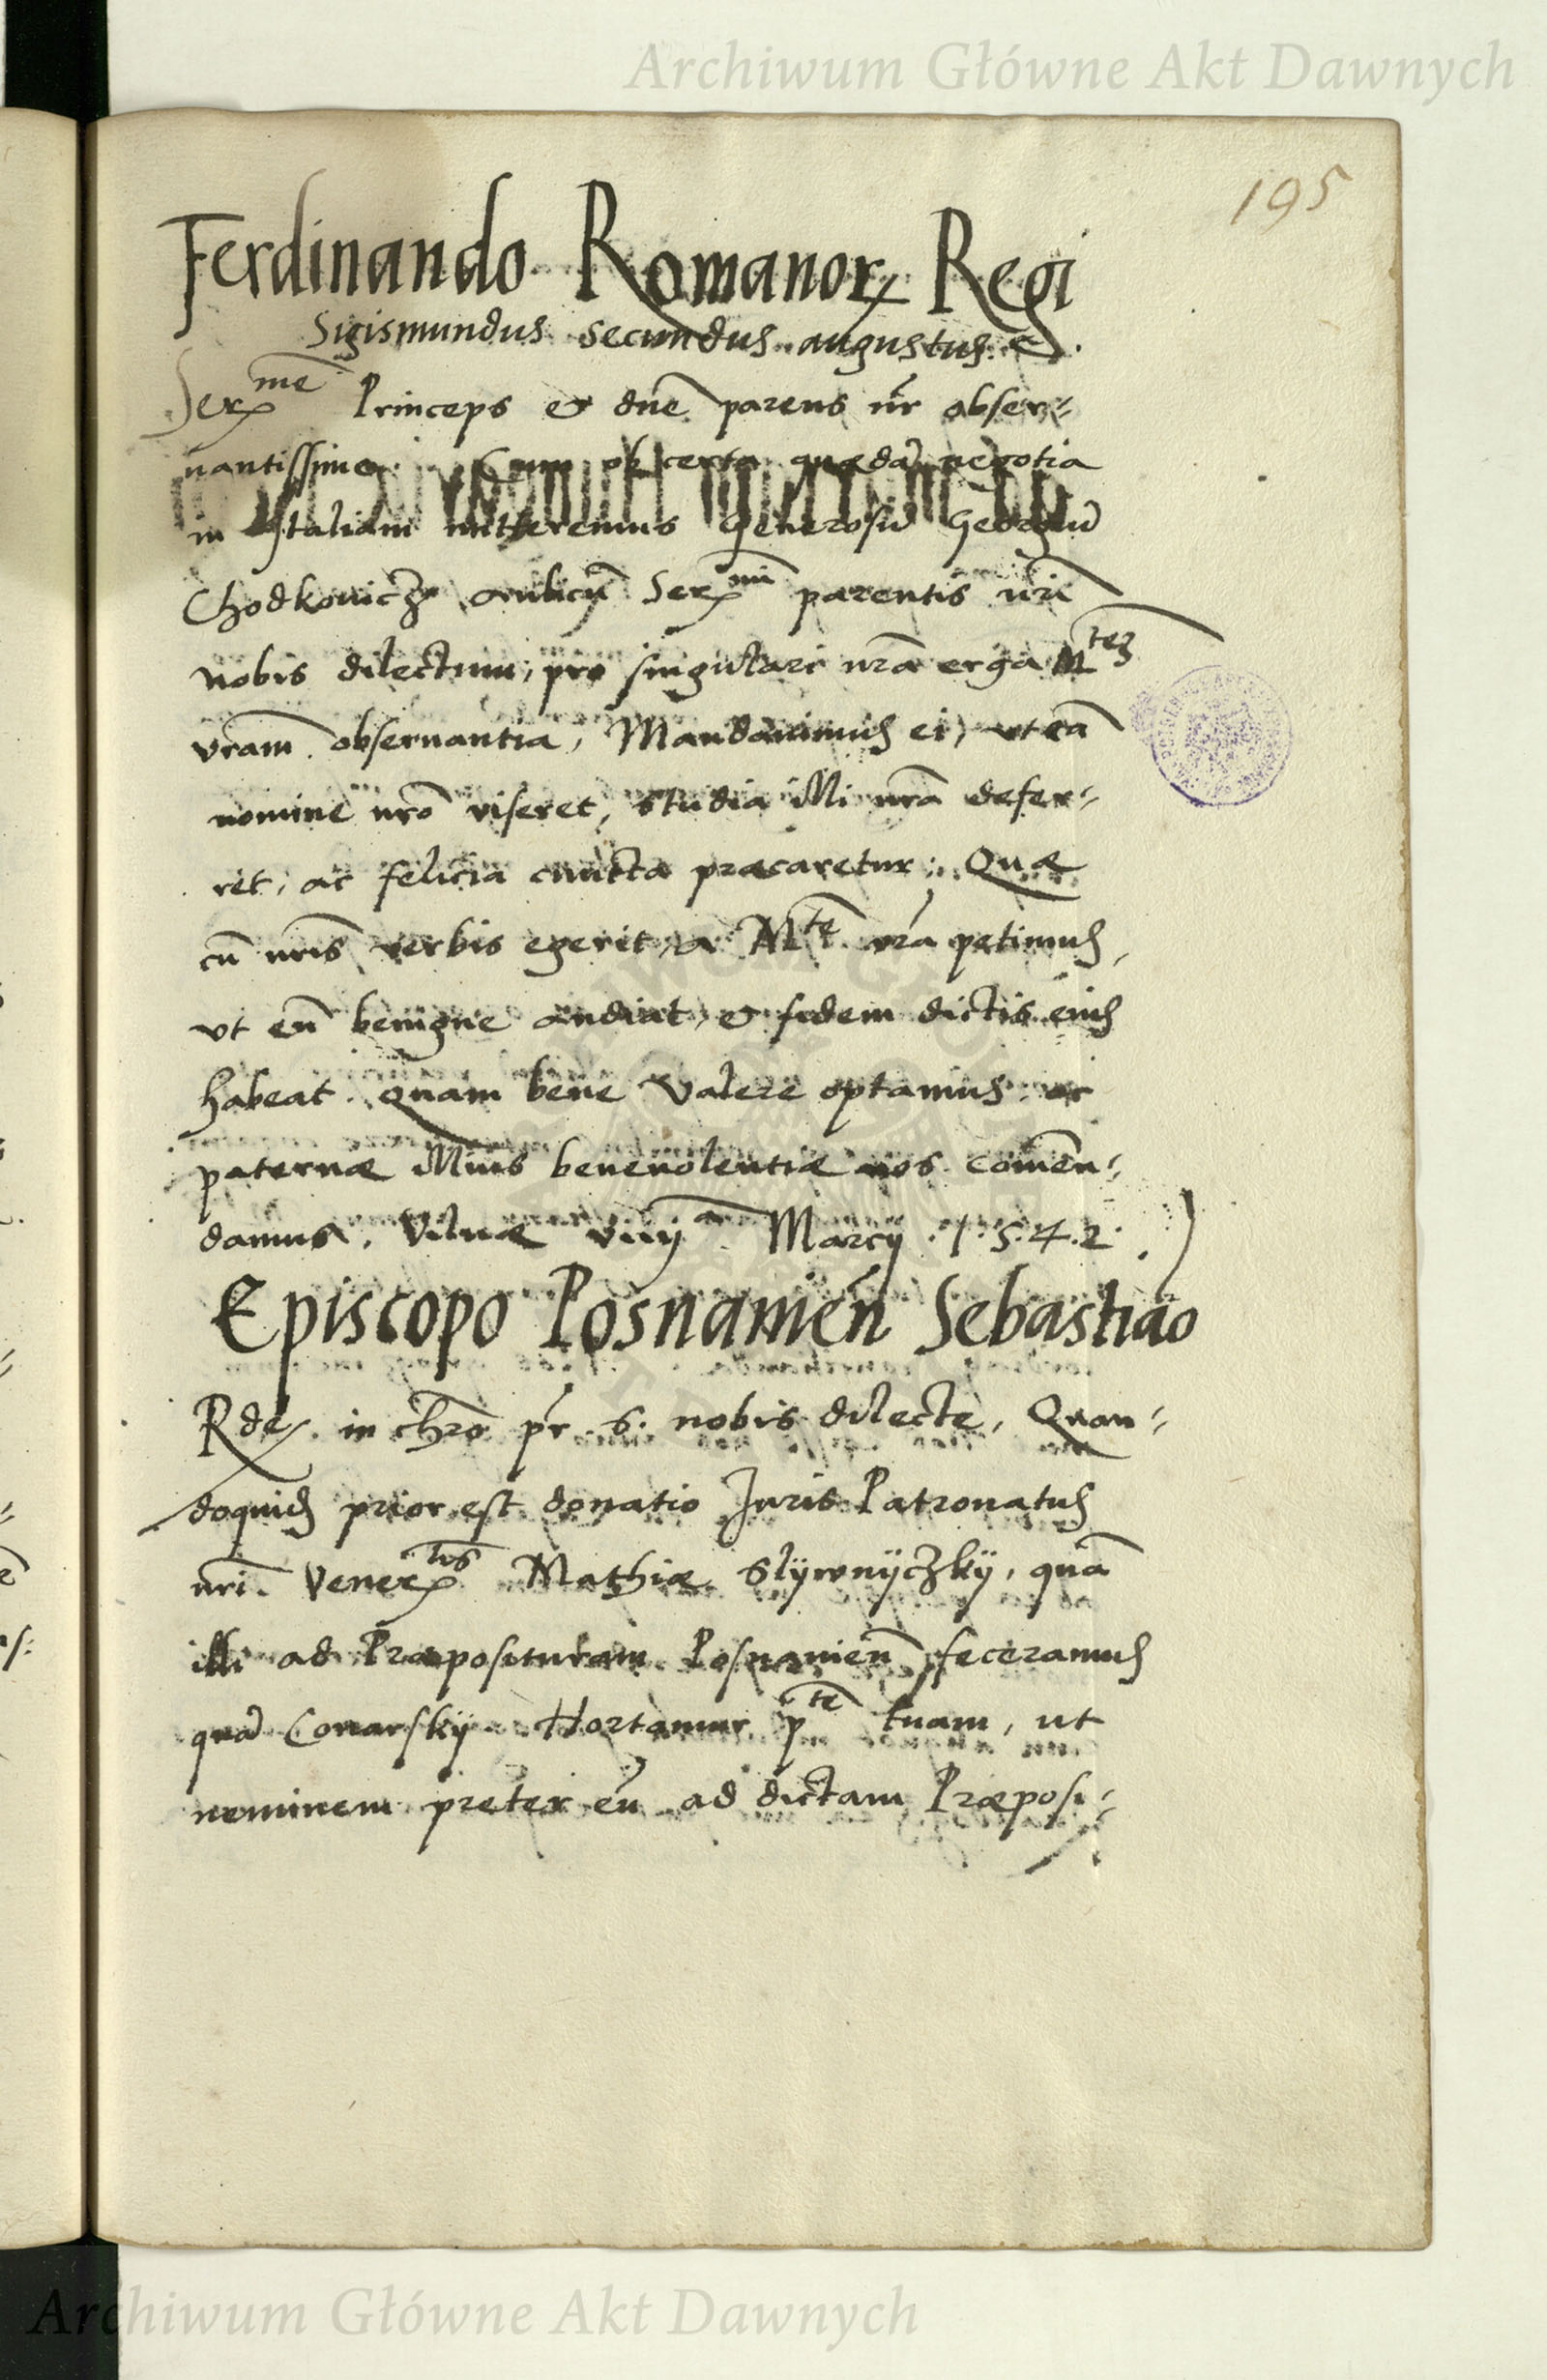 Archiwum Główne Akt Dawnych
195
Ferdinando Romanorꝝ Regi
Sigismundus Secundus augustus. &.
Serꝝ^me Princeps & dne parens nr̄ obser⸗
uantissime. Cum ob certa quædā negotia
in Italiam mitteremus Generosū Georgiū
Chodkouicz aulicū Serꝝ^mi parentis nr̄i
nobis dilectum, pro singulari nr̄a erga M^tez
vr̄am obseruantia, Mandauimus ei, ut eā
nomine nr̄o viseret, studia illi nr̄a defer⸗
ret, ac felicia cuncta præcaretur. Quæ
cū nr̄is verbis egerit, a M^te vr̄a petimus,
vt eū benigne audiat, & fidem dictis eius
habeat. Quam bene valere optamus ac
paternæ illius beneuolentiæ nos comēn⸗
damus. Vilnæ viiij^a Marcij .1.5.4.2.
Episcopo Posnamień Sebastiāo
Rdeꝝ. in chro pr̄. s. nobis dilecte, Quan⸗
doquidē prior est donatio Juris Patronatus
nr̄i Venerꝝ^lis Mathiæ Slywnyczky, quā
illi ad Præposituram Posnanień feceramus
quā Conarsky. Hortamur p^te tuam, ut
neminem preter eū ad dictam Præposi⸗
Archiwum Główne Akt Dawnych